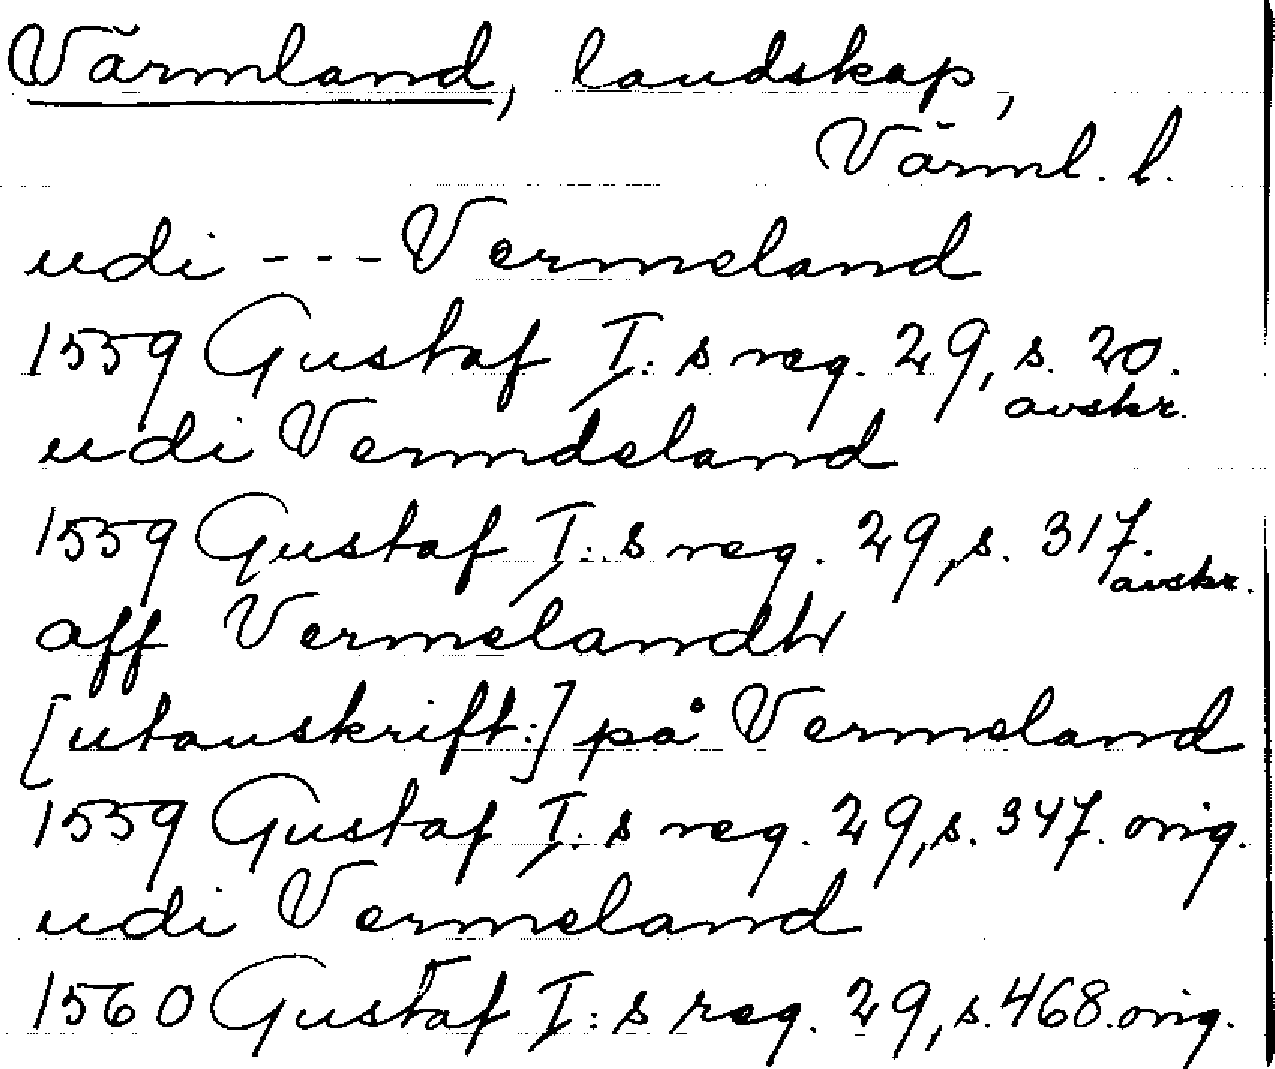 Värmland, landskap,
Värml. l.
udi --- Vermeland
1559 Gustaf I:s reg. 29, s. 20.
avskr.
udi Vermdeland
1559 Gustaf I:s reg. 29, s. 317.
avskr.
aff Vermelandh
[utanskrift:] på Vermeland
1559 Gustaf I:s reg. 29, s. 347. orig.
udi Vermeland
1560 Gustaf I:s reg. 29, s. 468. orig.